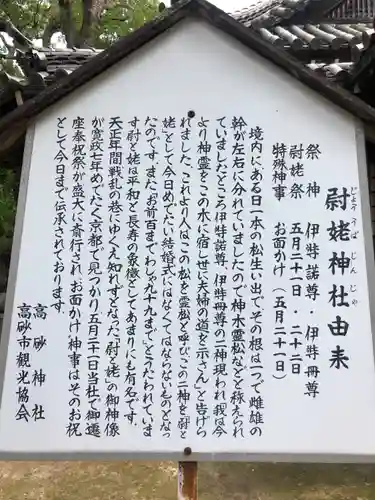 尉姥神社由来
じょううばじんじゃ
祭神　伊弉諾尊・伊弉冊尊
尉姥祭　五月二十一日・二十二日
特殊神事　お面かけ(五月二十一日)
境内にある日一本の松生い出で、その根は一つで雌雄の
幹が左右に分れていましたので、神木霊松などと称えられ
ていましたところ伊弉諾尊、伊弉冊尊の二神現われ「我は今
より神霊をこの木に宿し世に夫婦の道を示さん」と告げら
れました、これより人はこの松を霊松と呼び、この二神を「尉と
姥」として今日めでたい結婚式にはなくてはならないものとなっ
たのです。また、お前百までわしゃ九十九まで」とうたわれていま
す尉と姥は平和と長寿の象徴としてあまりにも有名です。
天正年間戦乱の巷にゆくえ知れずとなった「尉と姥」の御神像
が寛政七年めでたく京都で見つかり五月二十一日当社で御遷
座奉祝祭が盛大に斎行されお面かけ神事はそのお祝
として今日まで伝承されております。
高砂神社
高砂市観光協会